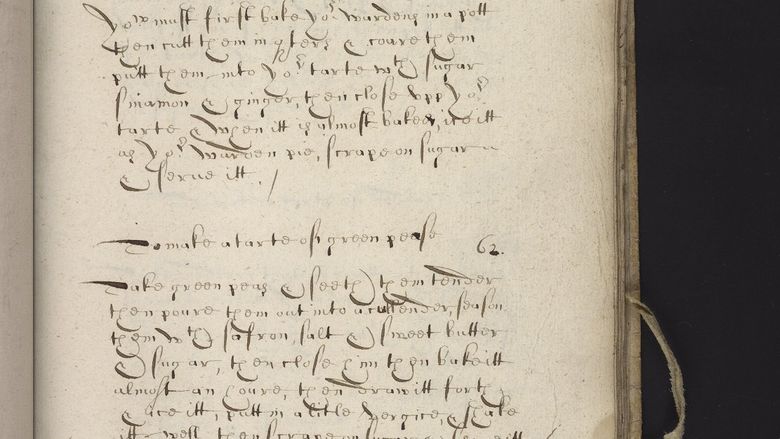 yow must first bake yor wardens in a pott
then cutt them in qters & coare them
putt them into yor tarte wth sugar
sinamon & ginger, then close upp yor
tarte & when itt is almost baked, ice itt
as yor warden pie, scrape on sugar
& serue itt,
To make a tarte of green pease 62.
Take green peas & seeth them tender
then poure them out into a cullender, season
them wth safron, salt & sweet butter
& sugar, then close him then bake itt
almost an houre, then draw itt forth
& ice itt, putt in a litle vergice, & shake
itt well, then scrape on sugar & serue itt